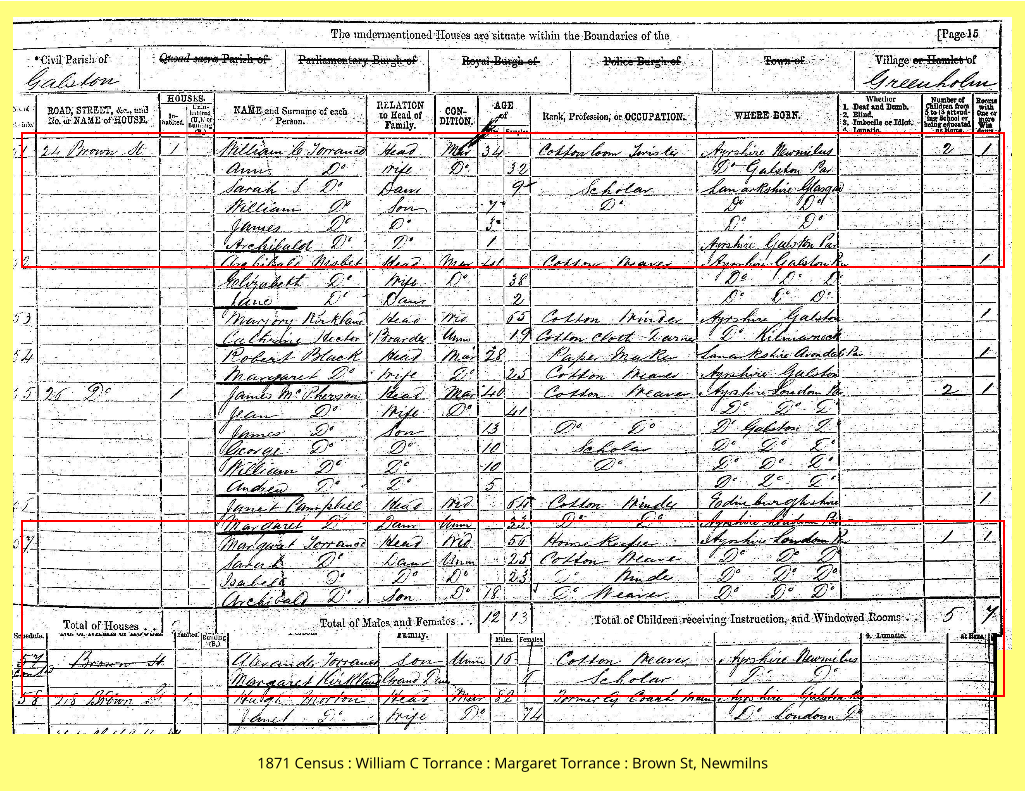 The undermentioned Houses are situate within the Boundaries of the [Page 15
Civil Parish of Quoad sacra Parish of Parliamentary Burgh of Royal Burgh of Police Burgh of Town of Village or Hamlet of
Galston Greenholm
ROAD, STREET, &c., and No. or NAME of HOUSE. HOUSES. NAME and Surname of each Person. RELATION to Head of Family. CONDITION. AGE Rank, Profession, or OCCUPATION. WHERE BORN. Whether 1. Deaf and Dumb. 2. Blind. 3. Imbecile or Idiot. 4. Lunatic. Number of Children from 5 to 13 attending School or being educated at Home Rooms with One or more
24 Brown St 1 William C Torrance Head Mar 34 Cotton loom Twister Ayrshire Newmilns 2 1
Ann Do Wife Do 32 Do Galston Par
Sarah S Do Daur 9 Scholar Lanarkshire Glasgow
William Do Son 7 Do Do Do
James Do Do 3 Do Do
Archibald Do Do 1 Ayrshire Galston Par
Archibald Nisbet Head Mar 41 Cotton Weaver Ayrshire Galston Par 1
Elizabeth Do Wife Do 38 Do Do Do
Jane Do Daur 2 Do Do Do
53 Marjory Kirkland Head Wid 65 Cotton Winder Ayrshire Galston 1
Catherine Hector Boarder Unm 19 Cotton Cloth Darner Do Kilmarnock
54 Robert Black Head Mar 28 Paper Lanarkshire Avondale Par 1
Margaret Do Wife Do 25 Cotton Weaver Ayrshire Galston
5 26 Do 1 James McPherson Head Mar 40 Cotton Weaver Ayrshire Loudon Par 2 1
Jean Do Wife Do 41 Do Do Do
James Do Son 13 Do Do Do Galston Do
George Do Do 10 Scholar Do Do Do
William Do Do 10 Do Do Do Do
Andrew Do Do 5 Do Do Do
Janet Campbell Head Wid Cotton Winder Edinburghshire 1
Margaret Do Daur Unm 22 Do Do Ayrshire Loudoun Par
57 Margaret Torrance Head Wid 50 Home Keeper Ayrshire Loudon Par 1 1
Sarah Do Daur Unm 25 Cotton Weaver Do Do Do
Isabella Do Do Do 23 Do Winder Do Do Do
Archibald Do Son Do 18 Do Weaver Do Do Do
Total of Houses . . Total of Males and Females . . 12 13 Total of Children receiving Instruction, and Windowed Rooms 5 7
57 Brown St. Alexander Torrance Son Unm 16 Cotton Weaver Ayrshire Newmilns
Margaret Kirkland Grand Daur Scholar Do Do
58 Brown 1 Hugh Morton Head Mar 82 Formerly Coach man Ayrshire Galston Par
Janet Do Wife Do 74 Do Loudoun Do
1871 Census : William C Torrance : Margaret Torrance : Brown St, Newmilns